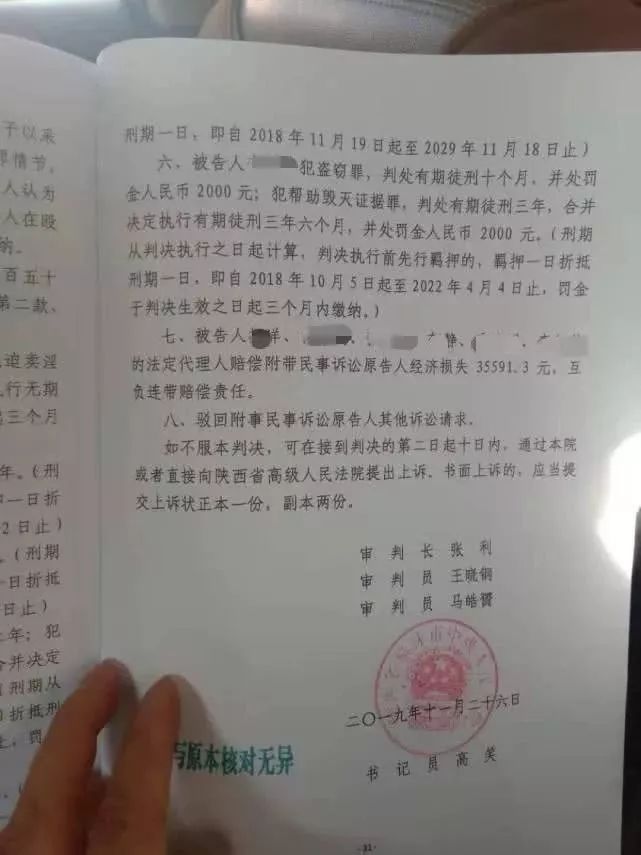 予以采
罪情节,
人认为
人在殴
纳。
百五十
第二款、
迫卖淫
行无期
出三个月
年。(刑
一日折
2日止)
。(刑期
一日折抵
日止)
年;犯
合并决定
刑期从
折抵刑
止,罚
刑期一日,即自2018年11月19日起至2029年11月18日止)
六、被告人 犯盗窃罪,判处有期徒刑十个月,并处罚
金人民币2000元;犯帮助毁灭证据罪,判处有期徒刑三年,合并
决定执行有期徒刑三年六个月,并处罚金人民币2000元。(刑期
从判决执行之日起计算,判决执行前先行羁押的,羁押一日折抵
刑期一日,即自2018年10月5日起至2022年4月4日止,罚金
于判决生效之日起三个月内缴纳。)
七、被告人 祥、
的法定代理人赔偿附带民事诉讼原告人经济损失35591.3元,互
负连带赔偿责任。
八、驳回附事民事诉讼原告人其他诉讼请求。
如不服本判决,可在接到判决的第二日起十日内,通过本院
或者直接向陕西省高级人民法院提出上诉。书面上诉的,应当提
交上诉状正本一份,副本两份。
审判长 张利
审判员 王晓钢
审判员 马皓
二〇一九年十一月二十六日
与原本核对无异
书记员 高笑